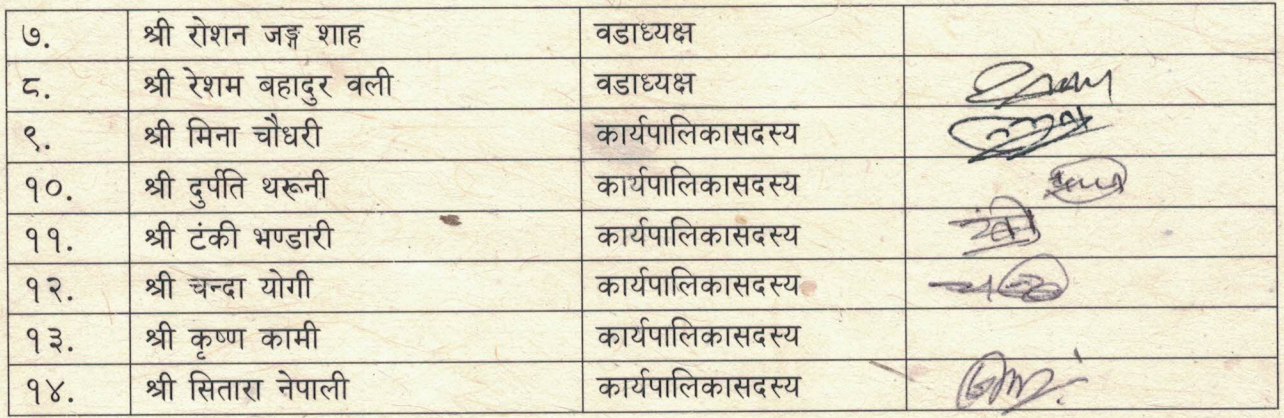 ७. श्री रोशन जङ्ग शाह वडाध्यक्ष
८. श्री रेशम बहादुर वली वडाध्यक्ष
९. श्री मिना चौधरी कार्यपालिकासदस्य
१०. श्री दुर्पति थरूनी कार्यपालिकासदस्य
११. श्री टंकी भण्डारी कार्यपालिकासदस्य
१२. श्री चन्दा योगी कार्यपालिकासदस्य
१३. श्री कृष्ण कामी कार्यपालिकासदस्य
१४. श्री सितारा नेपाली कार्यपालिकासदस्य